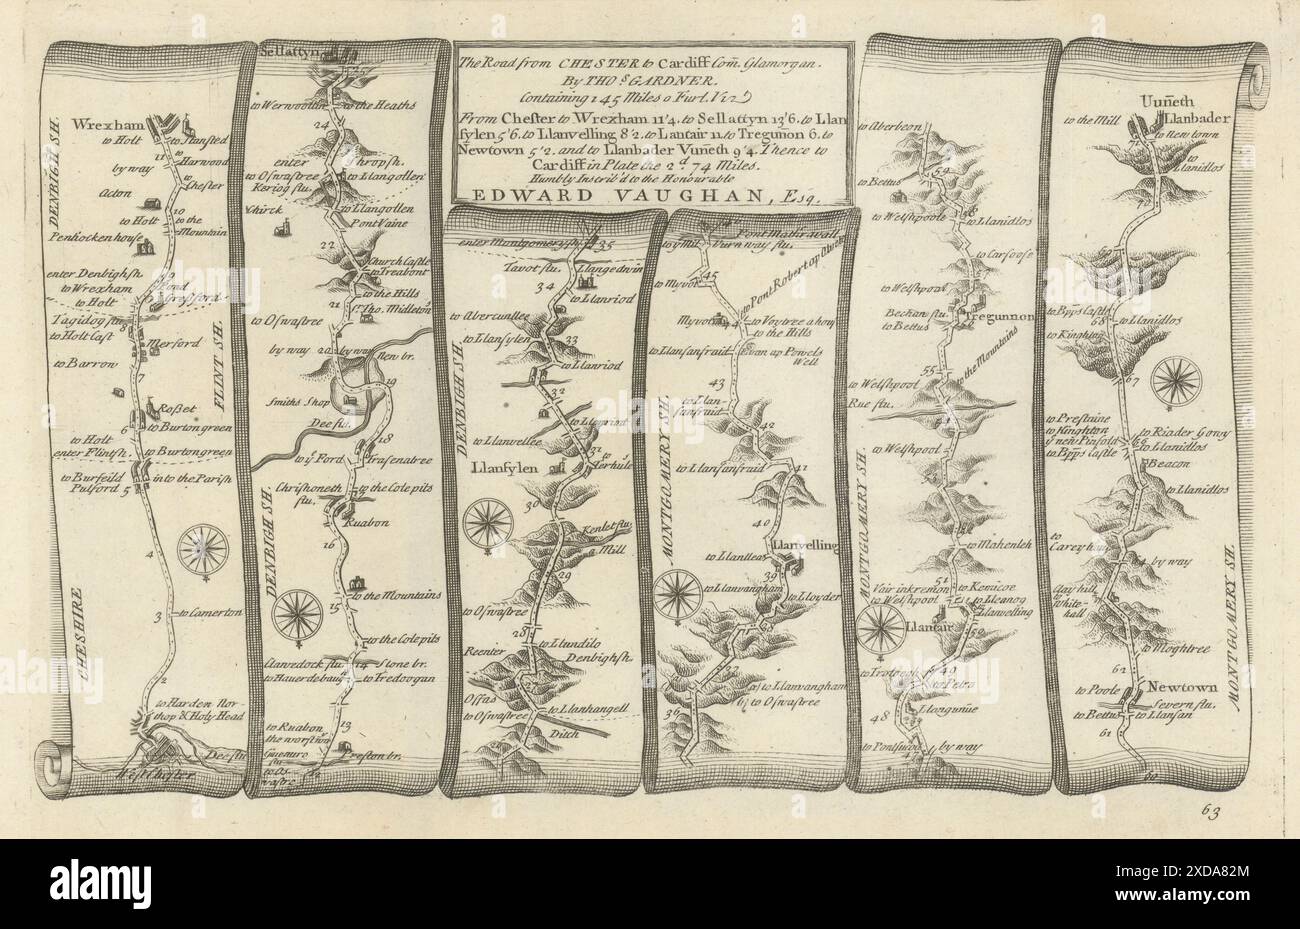 The Road from CHESTER to Cardiff Com. Glamorgan.
By THOS. GARDNER.
Containing 145 Miles 0 Furl. Vizt.
From Chester to Wrexham 11'4. to Sellattyn 13'6. to Llan
sylen 5'6. to Llanvelling 8'2. to Lanfair 11. to Tregunon 6. to
Newtown 5'2. and to Llanbader Vuneth 9'4. Thence to
Cardiff in Plate the 2d 74 Miles.
Humbly Inscrib'd to the Honourable
EDWARD VAUGHAN, Esq.
DENBIGH SH.
Wrexham
to Holt
to Stansted
to Harwood
11
by way
to Chester
Acton
10
to Holt
to the Mountain
Penhocken house
enter Denbighsh.
to Wrexham
9
Pond
to Holt
Gresford
Tagidog flu
8
to Holt Cast
Merford
FLINT SH.
to Barrow
7
Roßet
6
to Burton green
to Holt
enter Flintsh.
to Burton green
to Burfeild
into the Parish
Pulford
5
4
3
to Camerton
CHESHIRE
2
to Harden Nor-
thop & Holy Head
Dee flu
West Chester
Sellattyn
25
to Wernwoollen
to the Heaths
24
enter Shropsh.
to Oswastree
to Llangollen
Keriog flu.
Chirck
to Llangollen
Pont Vaine
22
Church Castle
to Treabont
to the Hills
21
Sr. Tho. Midleton
to Oswastree
by way
20
by way
Allen br.
19
Smiths Shop
Dee flu
18
to ye Ford
Trasenatree
Chrisioneth
flu.
to the Cole pits
Ruabon
DENBIGH SH.
16
to the Mountains
15
to the Cole pits
Clawedock flu
14
Stone br.
to Hauerdebaugh
to Tredoogan
13
to Ruabon
the worst way
Preston br.
12
enter Montgomerysh.
35
Tavot flu
Llangedwin
34
to Llanriod
to Abercunllee
to Llansylen
33
to Llanriod
DENBIGH SH.
32
to Llanriod
to Llanvellee
Llansylen
to Terhule
30
Kenlet flu
Mill
29
to Oswastree
28
to Llundilo
Reenter
Denbighsh.
Offas
to Llanhangell
to Oswastree
Ditch
Pont Mathravall
to ye Mill
Vurnway flu.
45
to Pont Robert ap Oliver
to Myvot
Myvot
44
to Voytree a how
to the Hills
to Llansanfraid
Evan ap Powels
Well
43
to Llan-
sanfraid
42
MONTGOMERY SH.
to Llansanfraid
41
40
Llanvelling
to Llanlleas
39
to Llanvangham
to Lloyder
37
to Llanvangham
to Oswastree
36
to Aberbeon
to Bettus
59
to Welshpoole
58
to Llanidlos
to Carsoose
to Welshpool
Bechan flu.
to Bettus
Tregunnon
to the Mountains
55
to Welshpool
Rue flu.
to Welshpool
MONTGOMERY SH.
to Mahenleh
Vair inkremon
51
to Kenicoe
to Welshpool
to Lleanog
Llanvelling
Llanfair
50
to Trotrock
49
to Petra
Llongunue
48
to Pontsuood
by way
Vuneth
to the Mill
Llanbader
71
to New town
to Llanidlos
70
69
to Epps Castle
68
to Llanidlos
to Kinghton
67
to Prestaine
to Kinghton
to Riader Gowy
ye new Pinfold
to Llanidlos
to Epps Castle
Beacon
to Llanidlos
to
Careyhan
64
by way
Clay hill
to White-
hall
to Moghtree
62
to Poole
Newtown
Severn flu.
to Bettus
to Llansan
61
60
MONTGOMERY SH.
63
alamy
Image ID: 2XDA82M
www.alamy.com